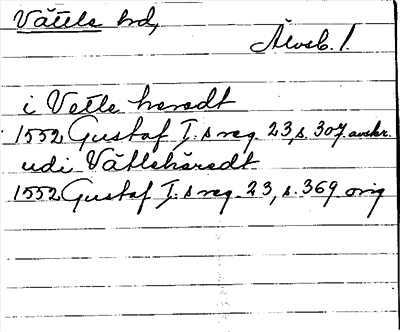 Vättle hd,
Älvsb. l.
i Vetle heredt
1552 Gustaf I.s reg. 23, s. 307 avskr.
udi Vättlehäredt
1552 Gustaf I.s reg. 23, s. 369 orig